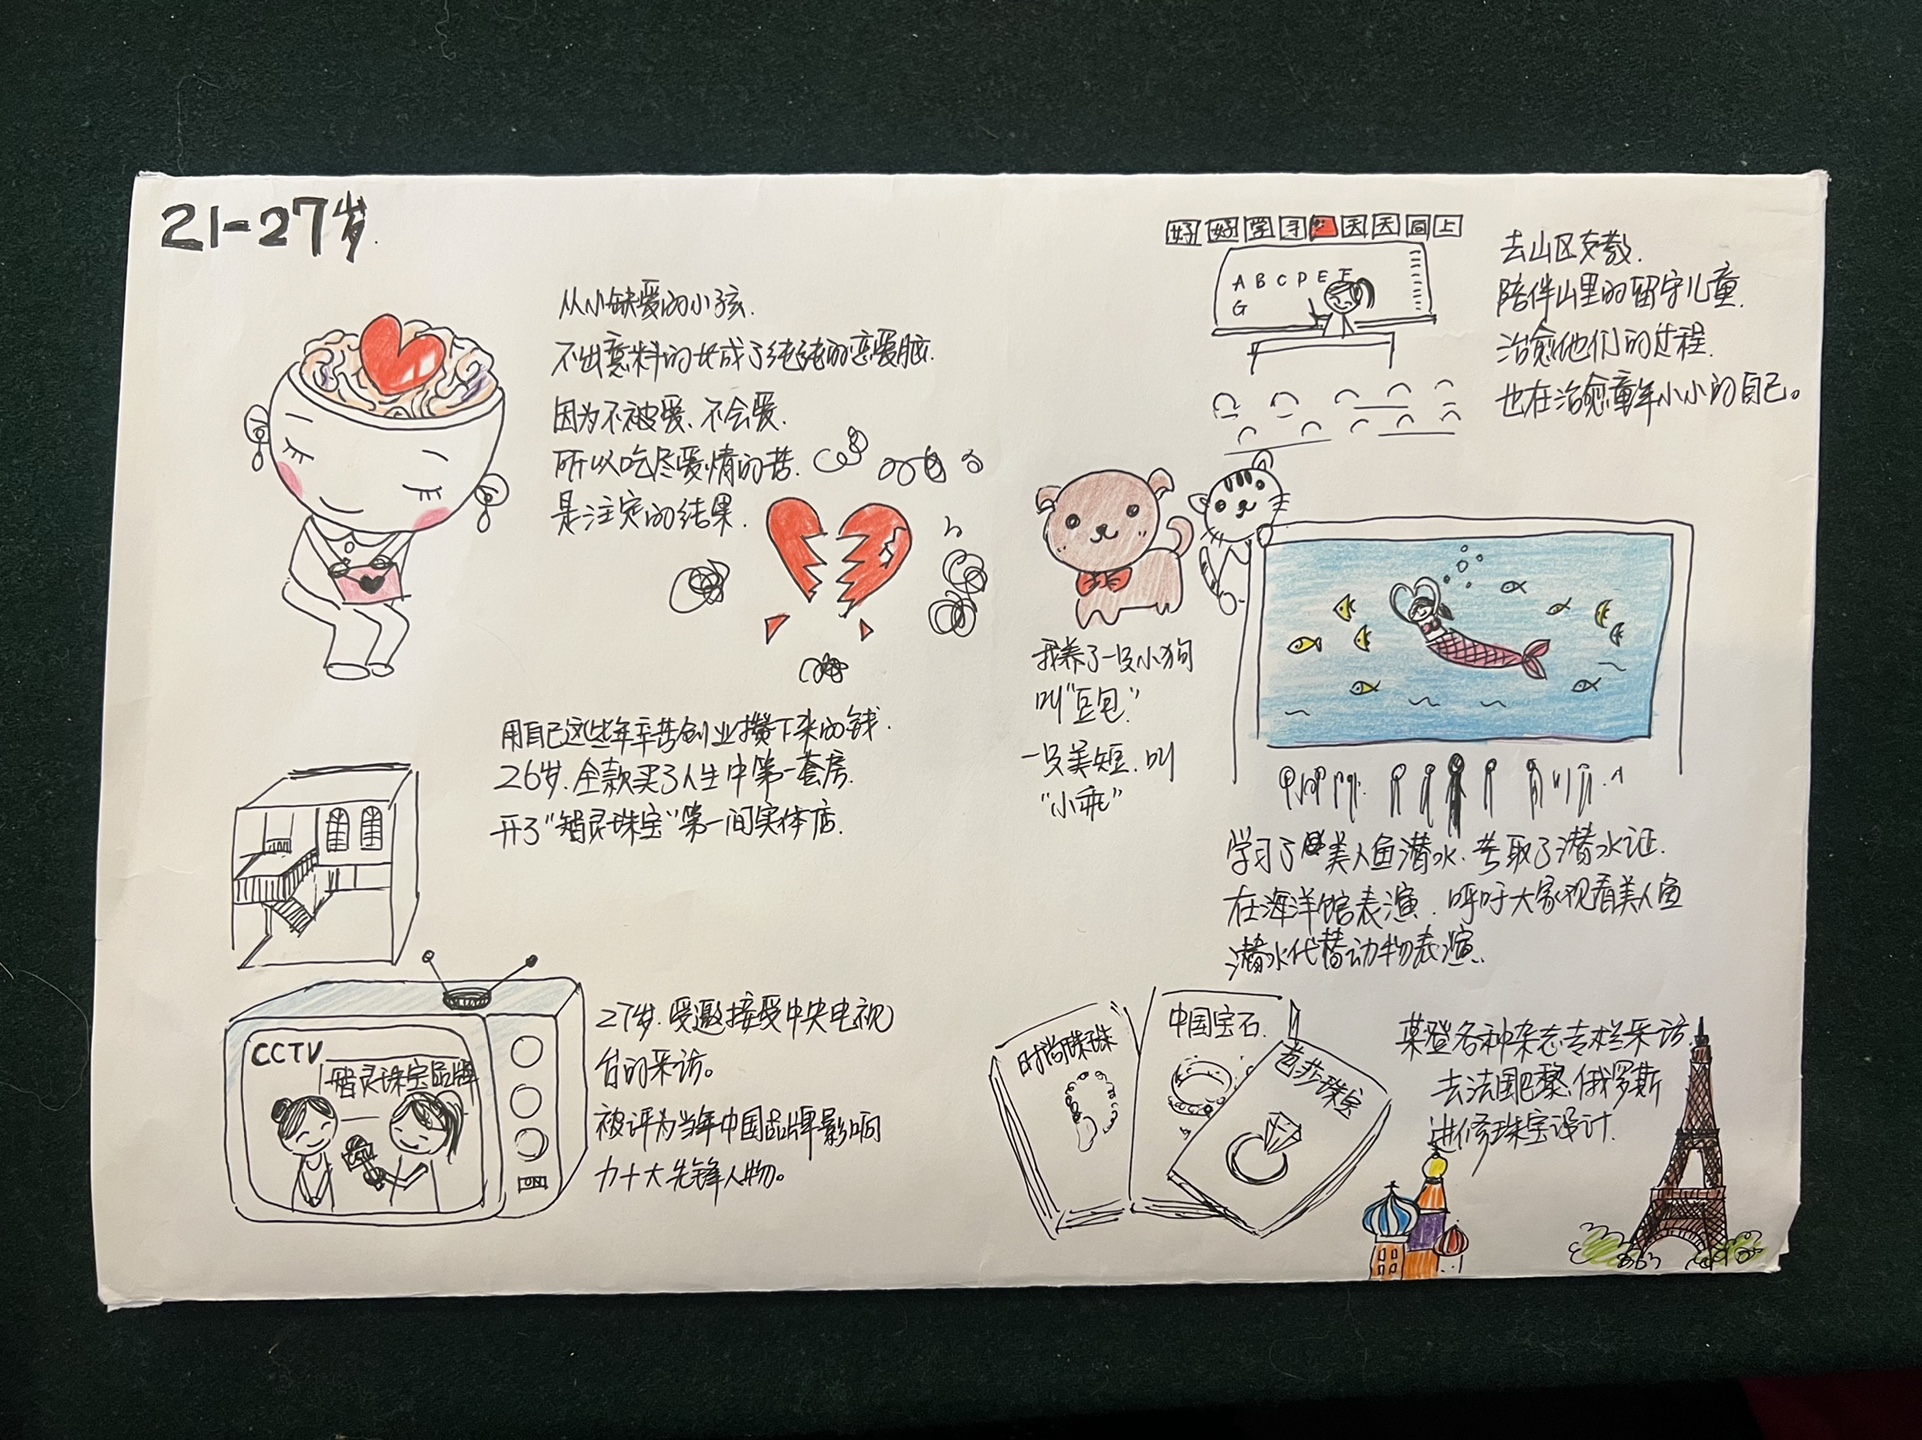 21-27岁
从小缺爱的小孩.
不出意料的长成了纯纯的恋爱脑.
因为不被爱、不会爱.
所以吃尽爱情的苦.
是注定的结果.
用自己这些年辛苦创业攒下来的钱.
26岁.全款买了人生中第一套房.
开了"智灵珠宝"第一间实体店.
CCTV
智灵珠宝品牌
27岁.受邀接受中央电视
台的采访。
被评为当年中国品牌影响
力十大先锋人物。
好好学习天天向上
A B C D E F
G
去山区支教.
陪伴山里的留守儿童.
治愈他们的过程.
也在治愈童年小小的自己。
我养了一只小狗
叫"豆包"
一只美短.叫
"小乖"
学习了美人鱼潜水.考取了潜水证.
在海洋馆表演.呼吁大家观看美人鱼
潜水代替动物表演.
时尚珠珠
中国宝石.
芭莎珠宝
荣登各种杂志专栏采访.
去法国巴黎.俄罗斯
进修珠宝设计.